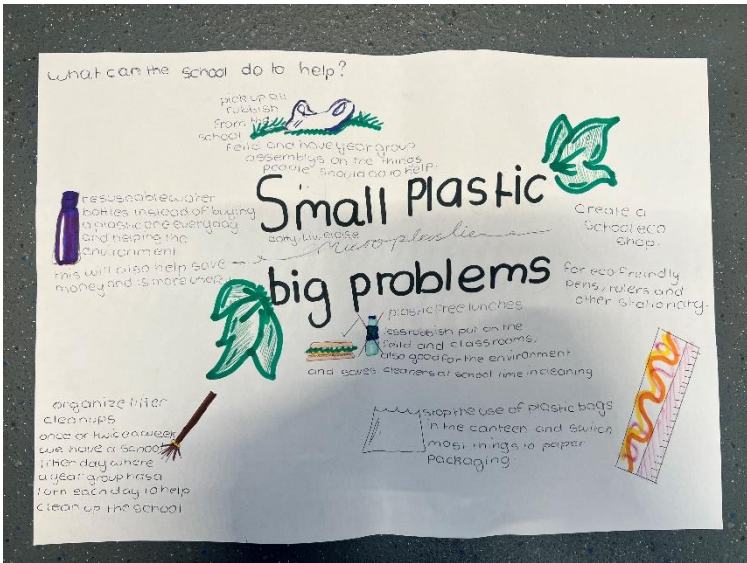 what can the school do to help?
pick up all
rubbish
from the
school
feild and have year group
assemblys on the things
people should do to help.
Small plastic
big problems
Micro plastics
resusnable water
bottles instead of buying
a plastic one everyday
and helping the
environment
this will also help save
money and is more
Create a
School eco
shop.
for eco friendly
pens, rulers and
other stationary.
plastic free lunches
less rubbish put on the
feild and classrooms,
also good for the environment
and saves cleaners at school time in cleaning
organize litter
cleanups
once or twice a week
we have a school
litter day where
a year group has a
turn each day to help
clean up the school
stop the use of plastic bags
in the canteen and switch
most things to paper
packaging.